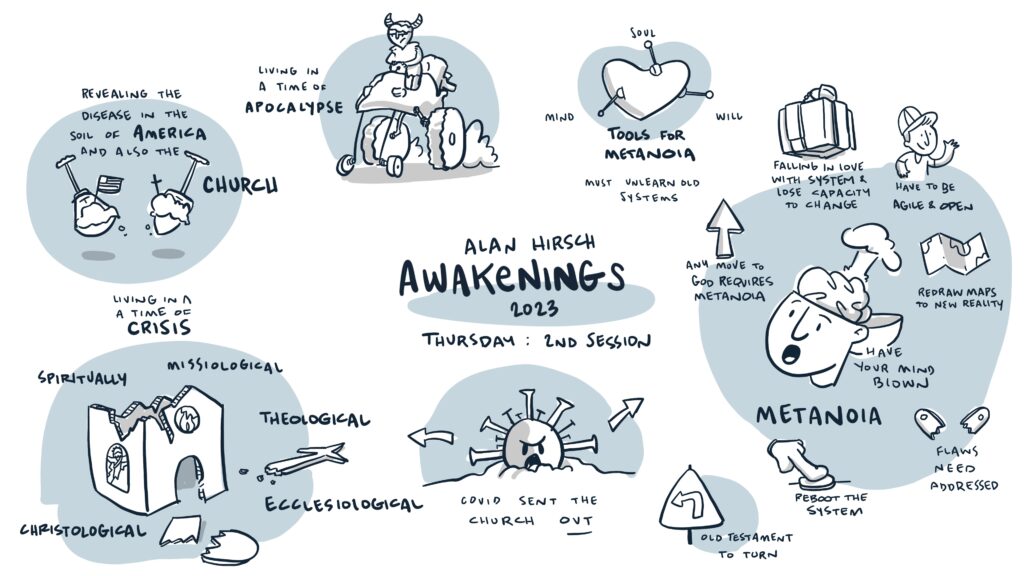 REVEALING THE
DISEASE IN THE
SOIL OF AMERICA
AND ALSO THE
CHURCH
LIVING IN
A TIME OF
APOCALYPSE
SOUL
MIND
WILL
TOOLS FOR
METANOIA
MUST UNLEARN OLD
SYSTEMS
FALLING IN LOVE
WITH SYSTEM &
LOSE CAPACITY
TO CHANGE
HAVE TO BE
AGILE & OPEN
ANY MOVE TO
GOD REQUIRES
METANOIA
REDRAW MAPS
TO NEW REALITY
HAVE
YOUR MIND
BLOWN
METANOIA
FLAWS
NEED
ADDRESSED
REBOOT THE
SYSTEM
ALAN HIRSCH
AWAKENINGS
2023
THURSDAY : 2ND SESSION
LIVING IN A
A TIME OF
CRISIS
SPIRITUALLY
MISSIOLOGICAL
THEOLOGICAL
ECCLESIOLOGICAL
CHRISTOLOGICAL
COVID SENT THE
CHURCH OUT
OLD TESTAMENT
TO TURN